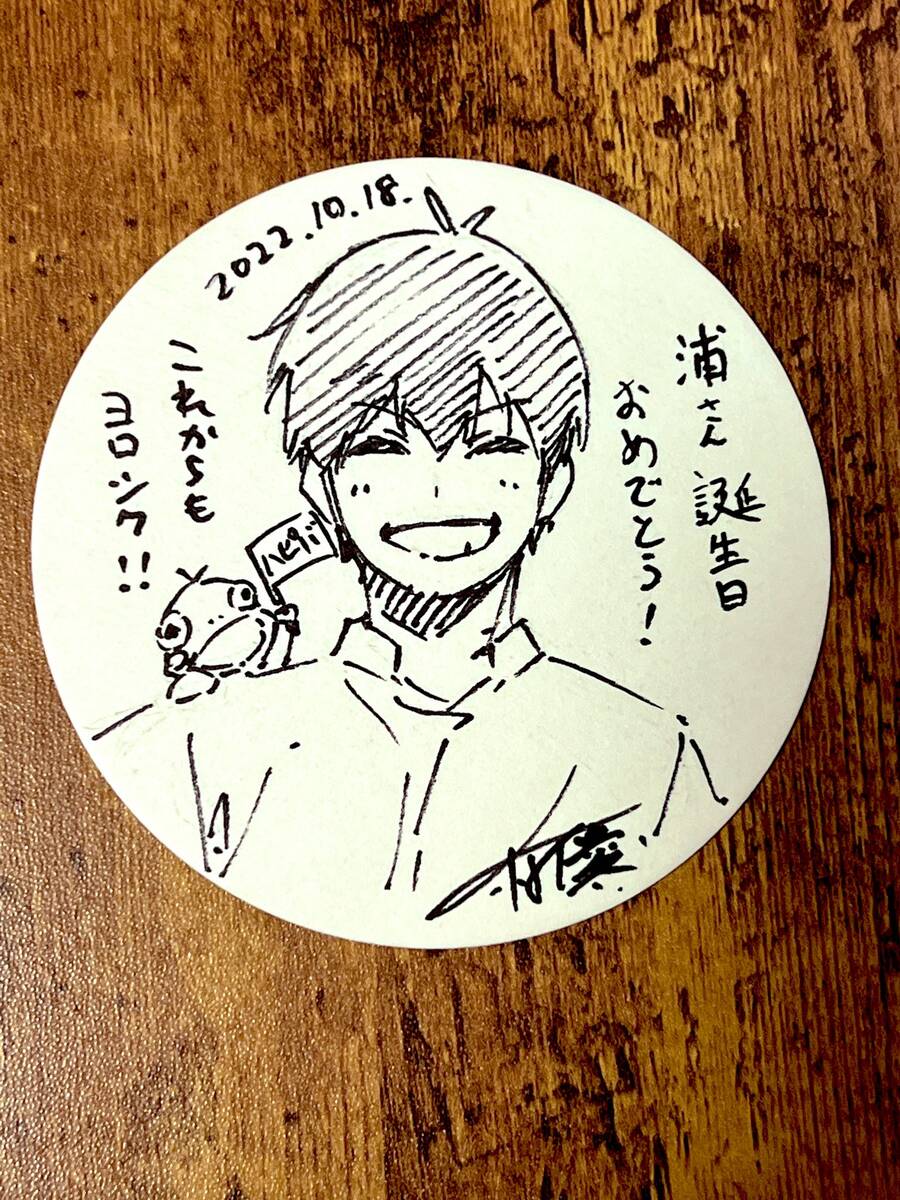 2022.10.18.
浦さん誕生日
おめでとう!
これからも
ヨロシク!!
ハピバ